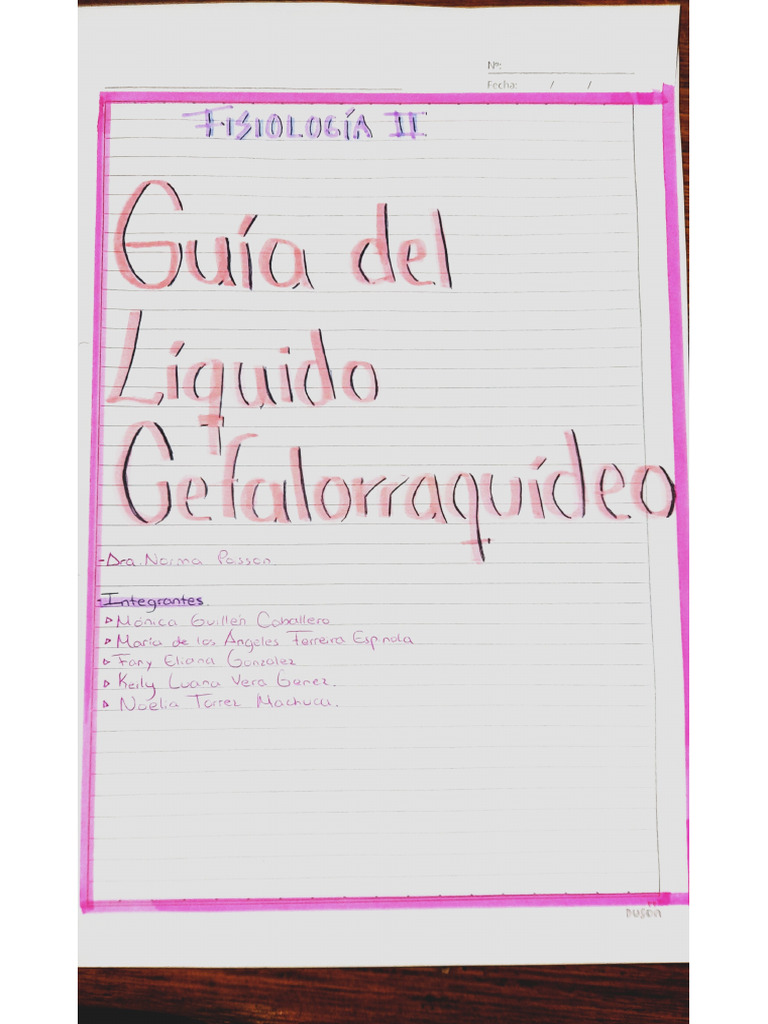 Nº:
Fecha: / /
FISIOLOGÍA II
Guía del
Líquido
Cefalorraquídeo
-Dra. Norma Poisson.
-Integrantes.
▷ Mónica Guillén Caballero
▷ María de los Ángeles Ferreira Espinola
▷ Fany Eliana Gonzalez
▷ Keily Luana Vera Gamez.
▷ Noelia Torrez Machuca.